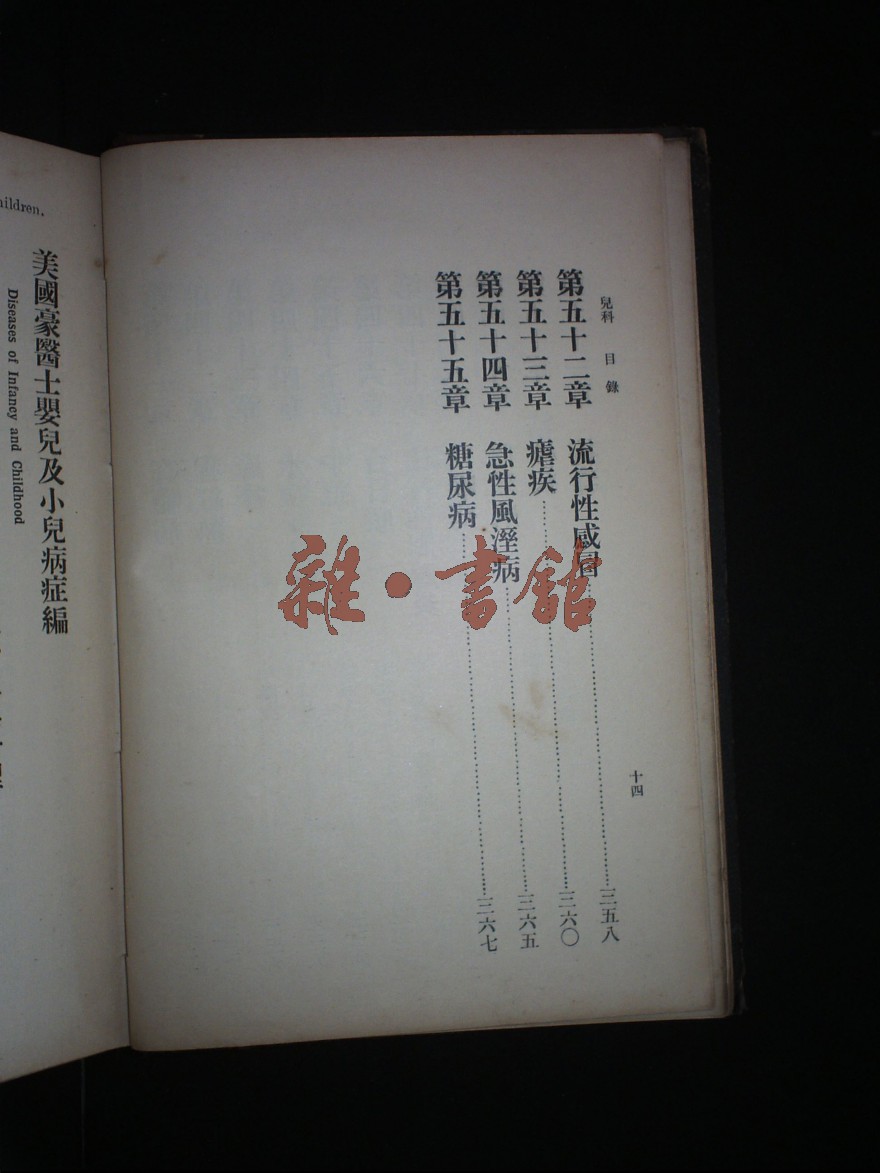 兒科 目錄
十四
第五十二章 流行性感冒……三五八
第五十三章 瘧疾……三六〇
第五十四章 急性風溼病……三六五
第五十五章 糖尿病……三六七
雜·書館
美國豪醫士嬰兒及小兒病症編
Diseases of Infancy and Childhood